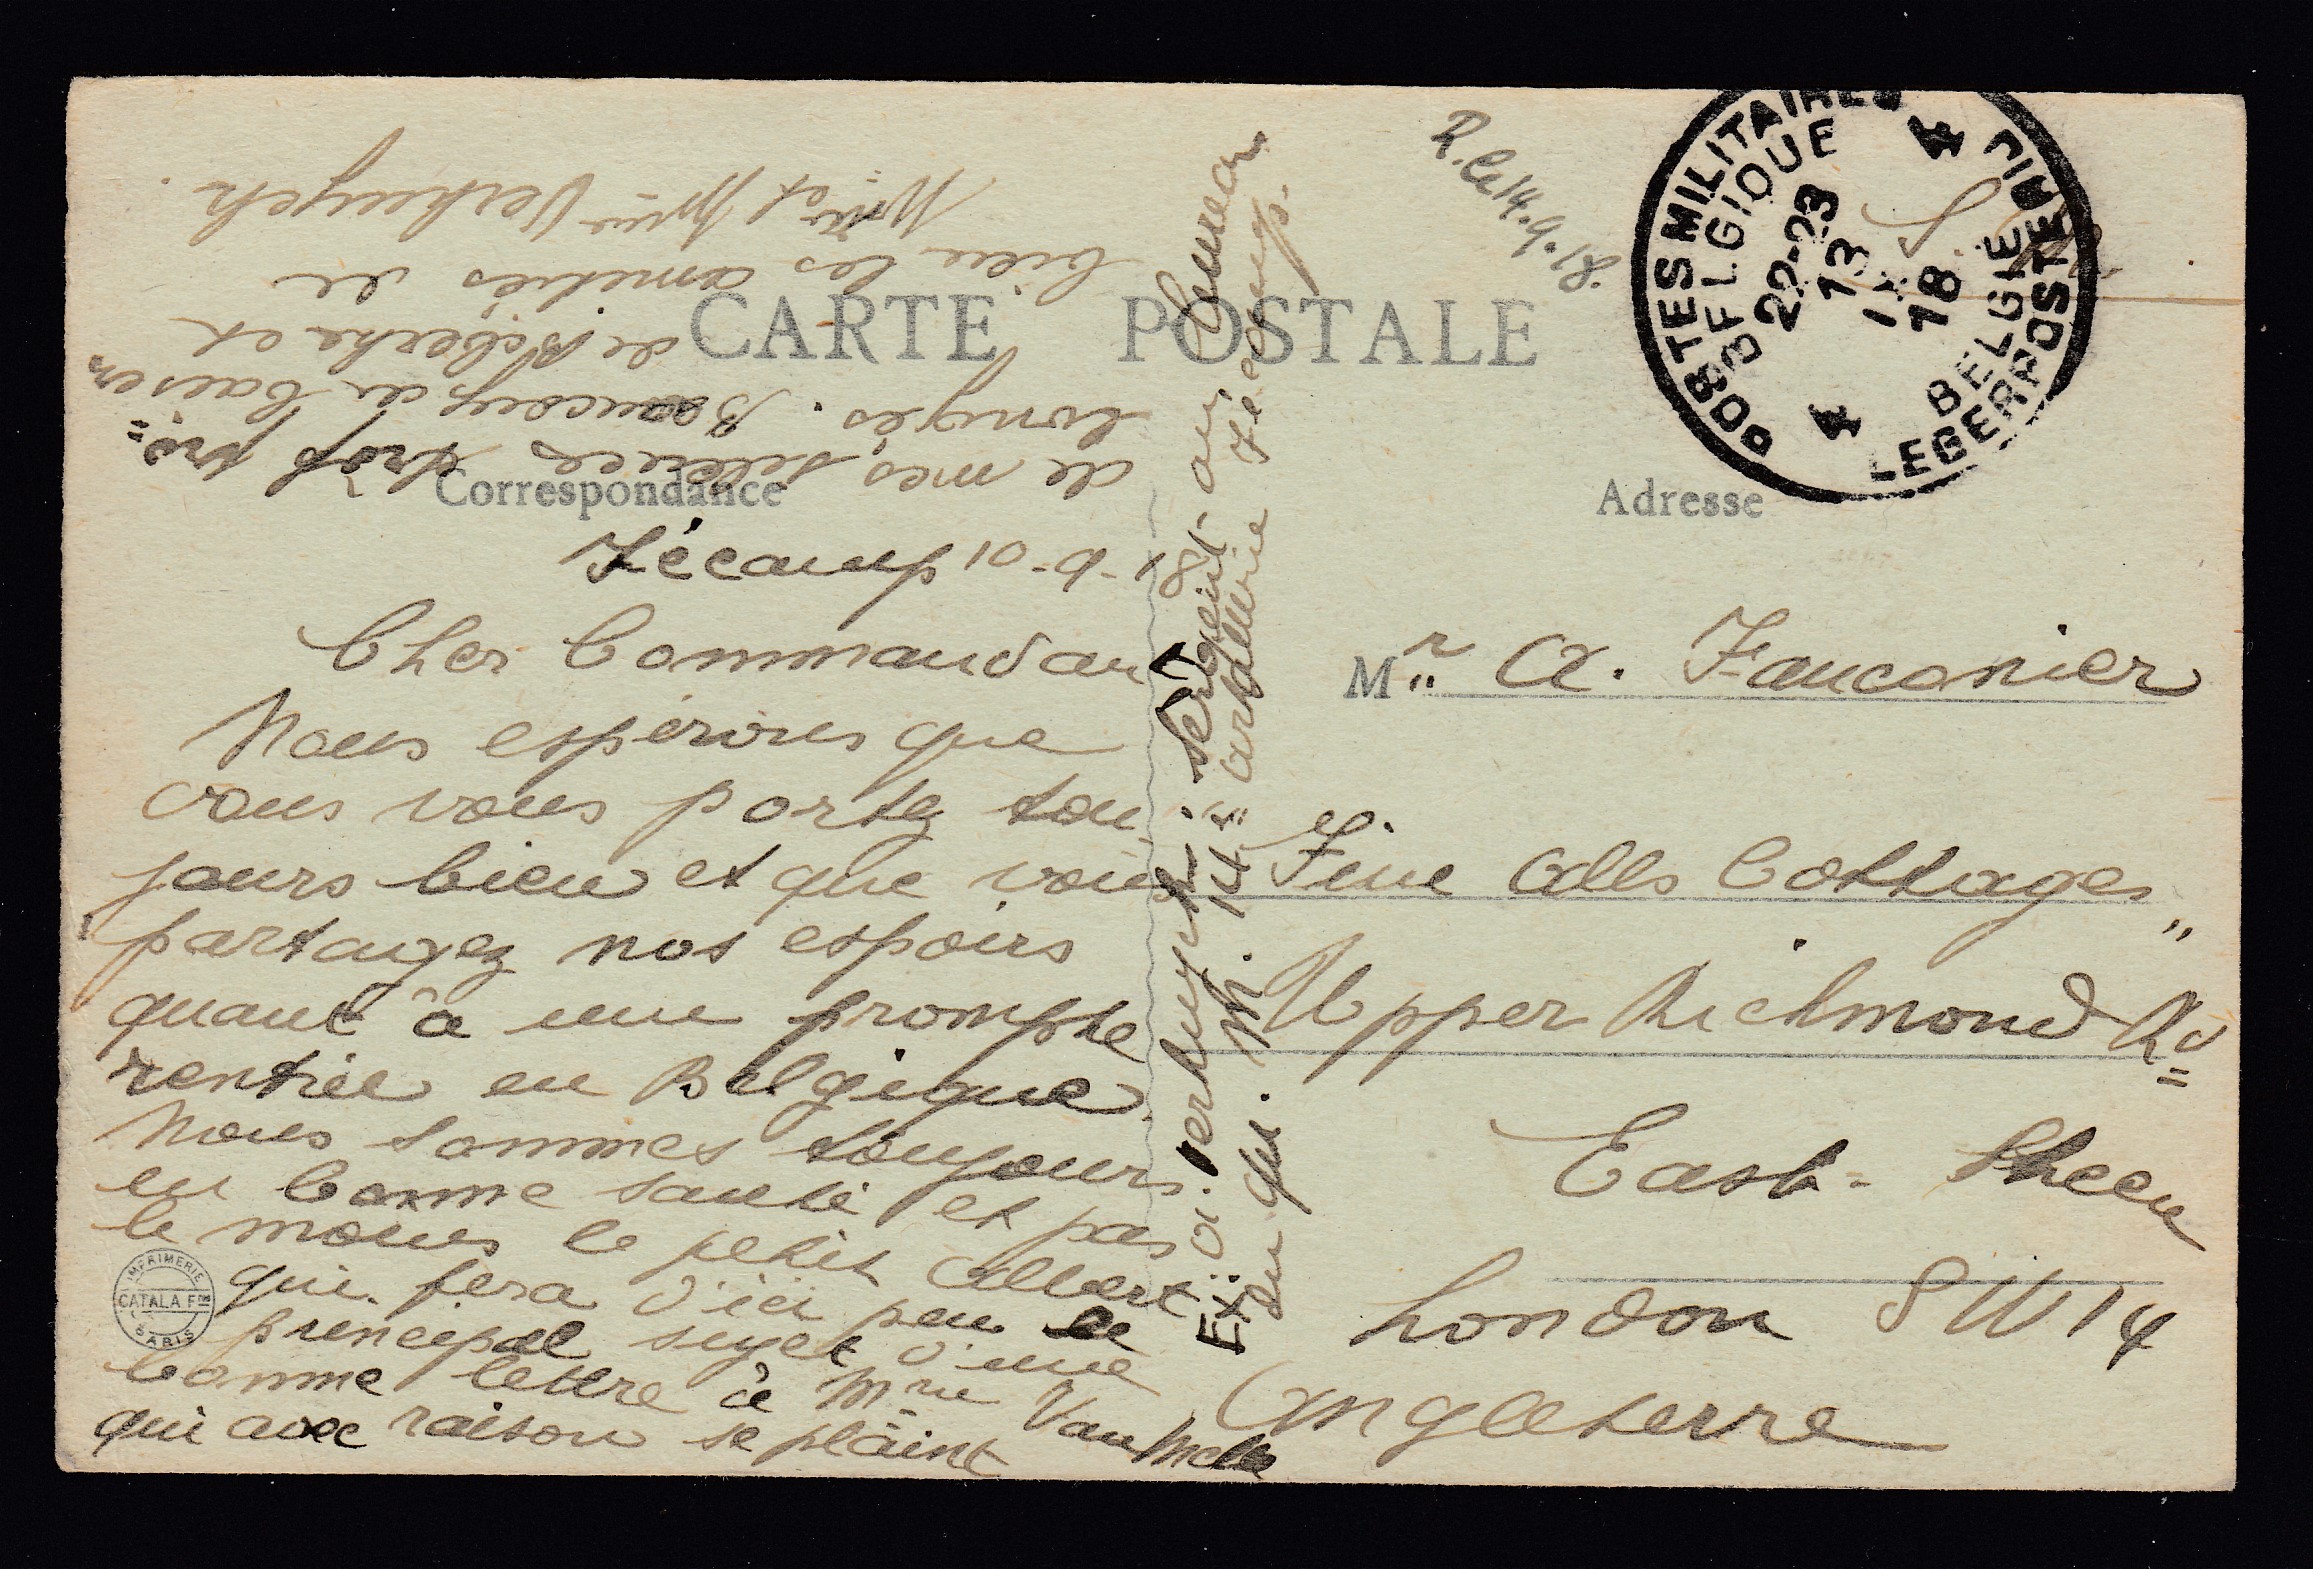 CARTE POSTALE
Correspondance
Adresse
Fécamp 10-9-18
Cher Commandant
Nous espérons que
vous vous portez tou
jours bien et que vous
partagez nos espoirs
quant à une prompte
rentrée en Belgique.
Nous sommes toujours
en bonne santé et pas
le moins le petit Albert
qui fera d'ici peu le
principal sujet d'une
bonne lettre à Mme Van Melle
qui avec raison se plaint
de mes silences trop pro=
longés. Beaucoup de baisers
de Bèbertha et
bien les amitiés de
Mr et Mme Verhuyck.
Ex: A. Verhuyck. Sergent au bureau
du qui. M. 14e artillerie Fécamp.
R. le 14.9.18.
POSTES MILITAIRES
BELGIQUE
4
22-23
13
IX
18
4
BELGIE
LEGERPOSTERIJ
S. M.
Mr A. Fauconier
Five Alls Cottages"
Upper Richmond Rd
East-Sheen
London SW14
Angleterre
IMPRIMERIE
CATALA Fres
PARIS